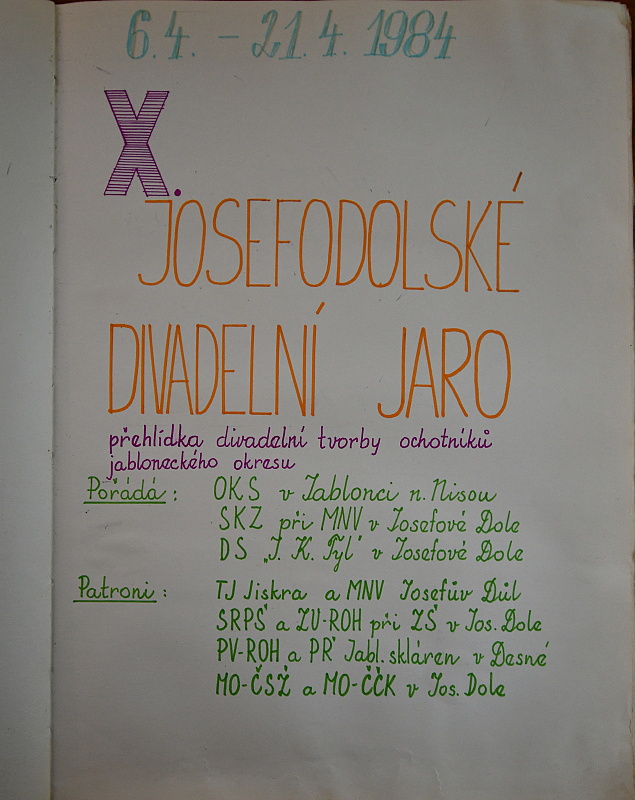 6.4. - 21.4. 1984
X.
JOSEFODOLSKÉ
DIVADELNÍ JARO
přehlídka divadelní tvorby ochotníků
jabloneckého okresu
Pořádá: OKS v Jablonci n. Nisou
SKZ při MNV v Josefově Dole
DS "J. K. Tyl" v Josefově Dole
Patroni: TJ Jiskra a MNV Josefův Důl
SRPŠ a ZV-ROH při ZŠ v Jos. Dole
PV-ROH a PŘ Jabl. skláren v Desné
MO-ČSŽ a MO-ČČK v Jos. Dole